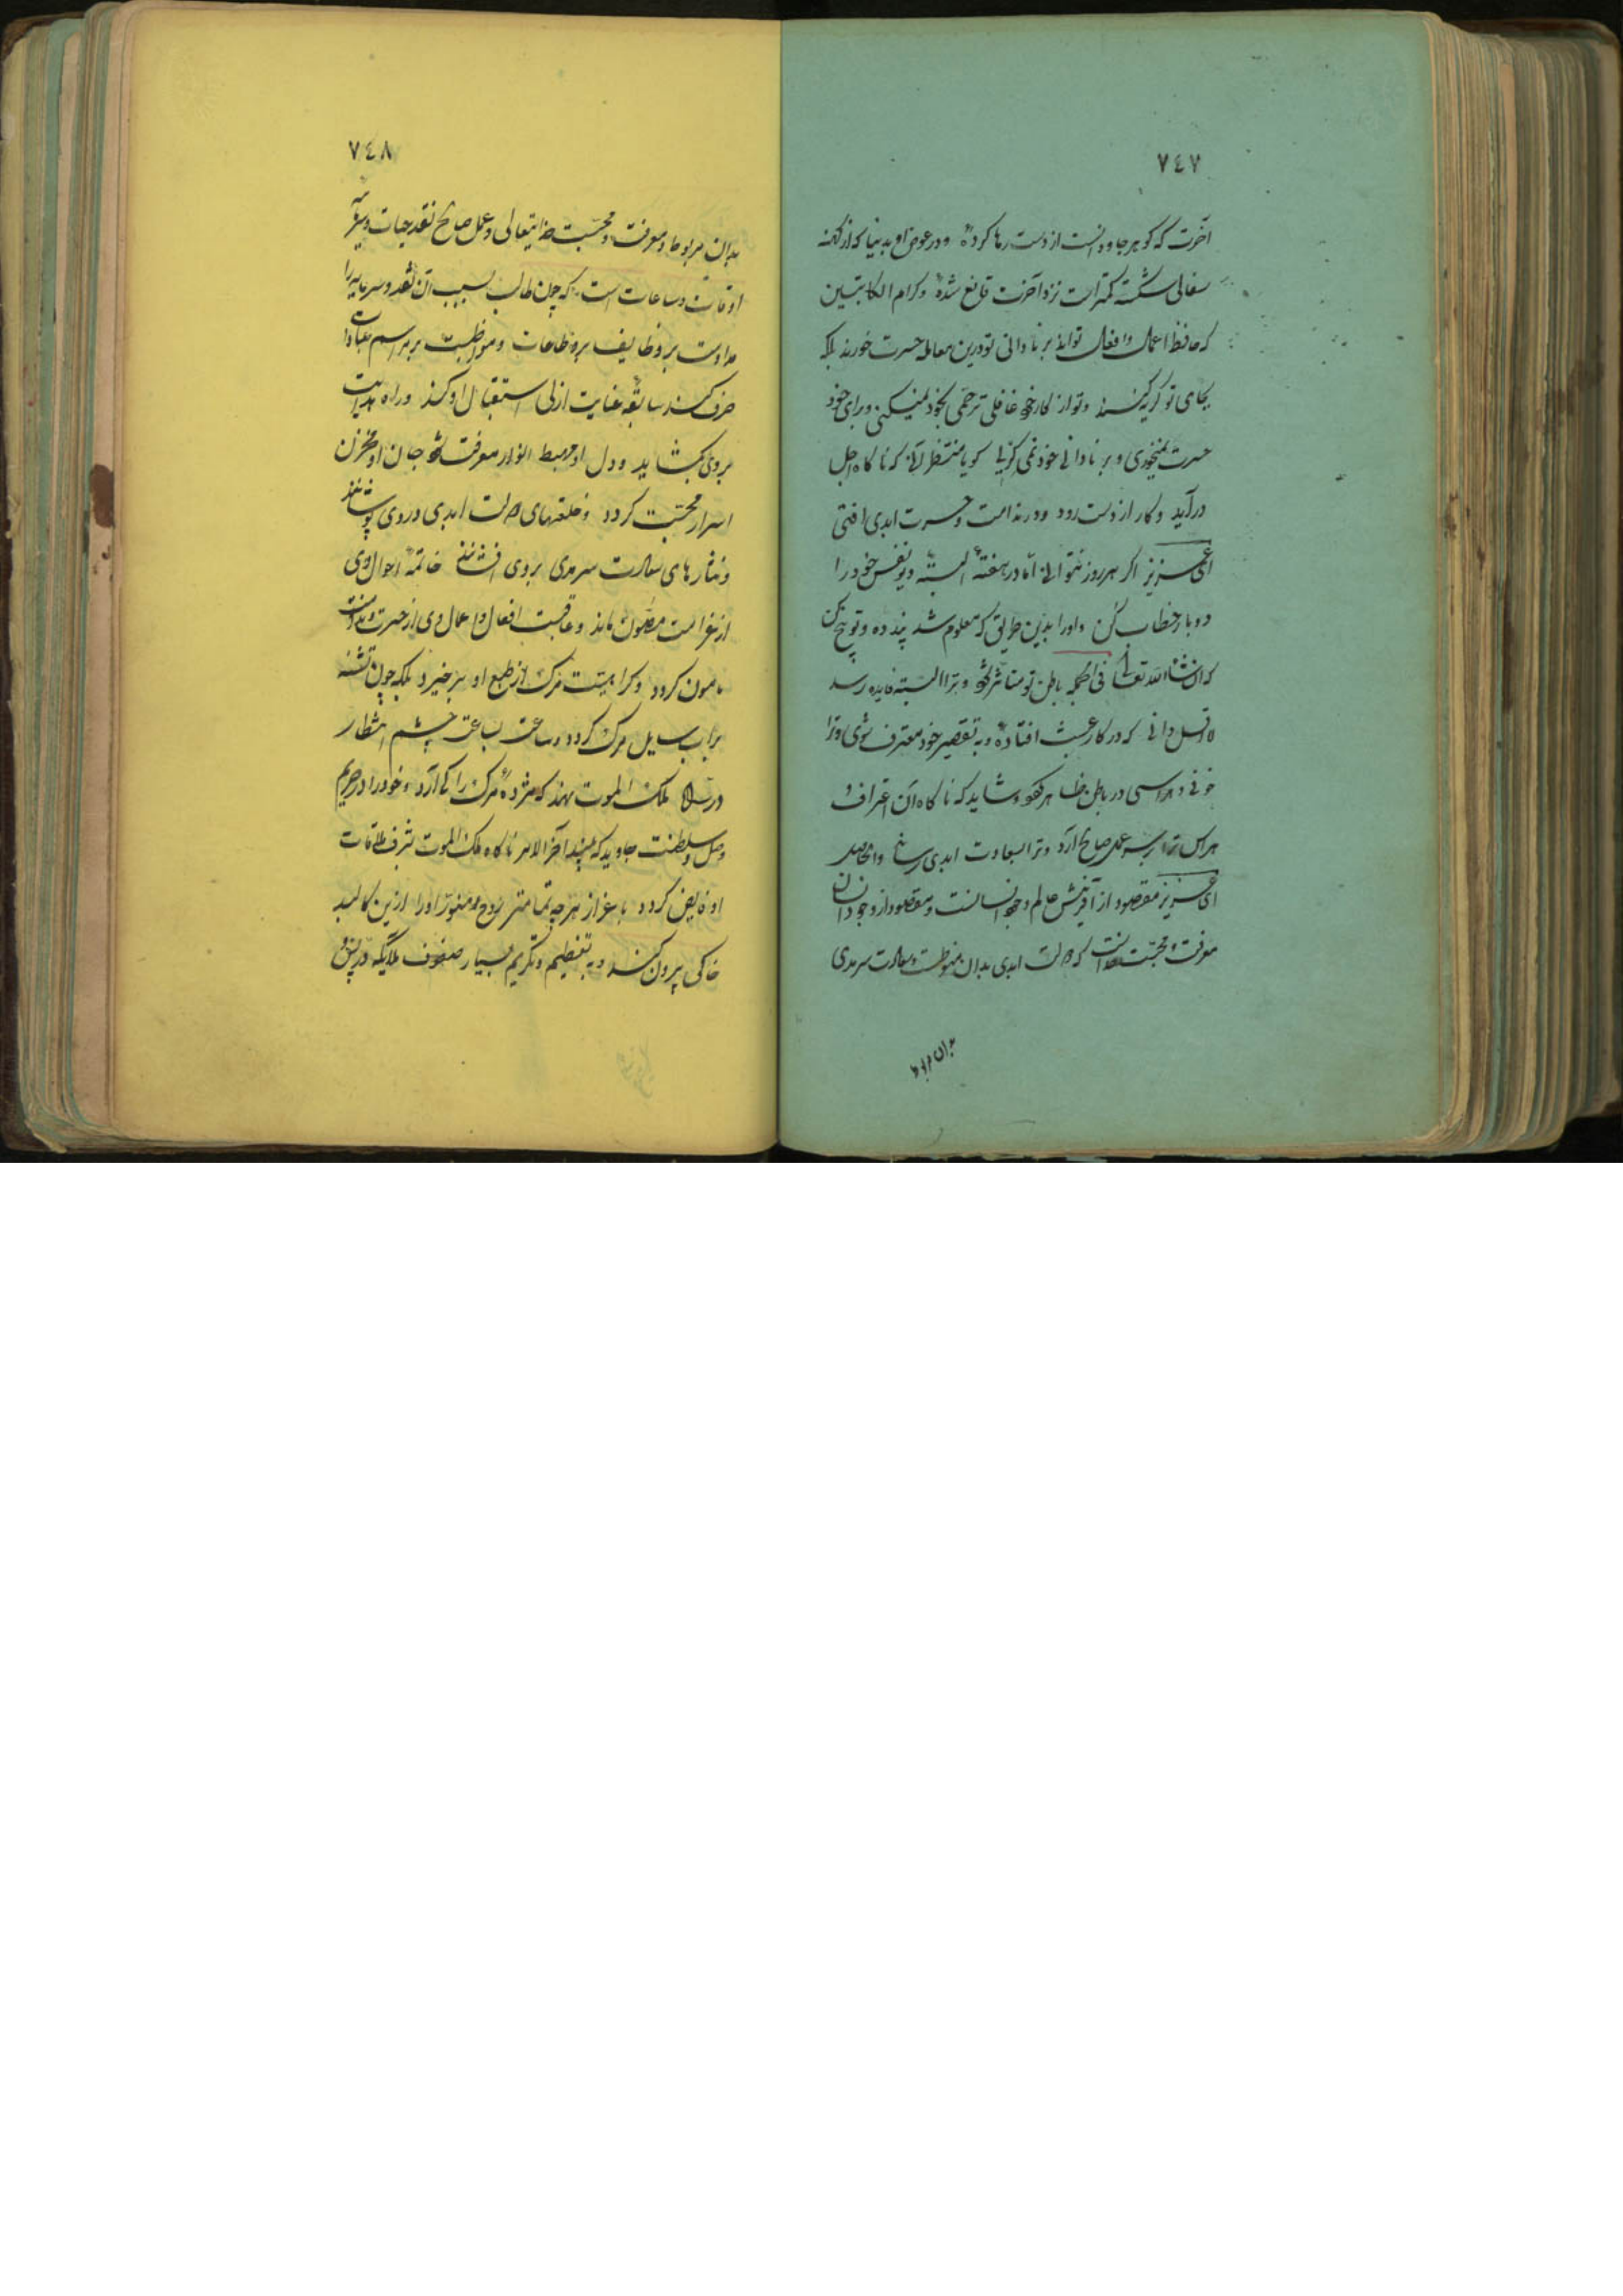 ٧٤٧
آخرت که گوهر جاودانست از دست رها کرده و در عوض او بدنیا که از کهنه
سفالی شکسته کمتر است نزد آخرت قانع شدهٔ و کرام الکاتبین
که حافظ اعمال و افعال تواند بر نادانی تو درین معامله حسرت خورند بلکه
بجای تو گریه کنند و تو از کار خود غافلی ترحمی بخود نمیکنی و برای خود
حسرت نمیخوری و بر نادانی خود نمی گریی گویا منتظر آنی که ناگاه اجل
درآید و کار از دست رود و در ندامت و حسرت ابدی افتی
ای عزیز اگر هر روز نتوانی اما در هفتهٔ البته دیو نفس خود را
دو بار خطاب کن و اورا بدین طریق که معلوم شد پند ده و توبیخ کن
که انشاء الله تعالی فی الجمله باطن تو متاثر شود و ترا البته فایده رسد
لااقل دانی که در کار عبث افتادهٔ و به تقصیر خود معترف شوی و ترا
خوفی و هراسی در باطن ظاهر شود و شاید که ناگاه آن اعتراف و
هراس ترا بر سر عمل صالح آرد و ترا بسعادت ابدی رساند والحاصل
ای عزیز مقصود از آفرینش عالم وجود انسانست و مقصود از وجود انسان
معرفت و محبت خداست که دولت ابدی بدان منوطست و سعادت سرمدی
بدان مربوط
٧٤٨
بدان مربوط و معرفت و محبت خدایتعالی و عمل صالح نقد حیات و سرمایه
اوقات و ساعات است که چون طالب بسبب آن نقد و سرمایه را
مداومت بر وظایف بر و طاعات و مواظبت بر مراسم عبادات
صرف کند سابقهٔ عنایت ازلی استقبال او کند و راه هدایت
بروی بگشاید و دل او مهبط انوار معرفت شود جان او مخزن
اسرار محبت گردد و خلعتهای دولت ابدی در وی پوشانند
و نثارهای سعادت سرمدی بروی افشانند خاتمهٔ احوال وی
از غرامت مصئون ماند و عاقبت افعال و اعمال وی از حسرت و ندامت
مامون گردد و کراهیت مرگ از طبع او برخیزد بلکه چون تشنه
براب سایل مرگ گردد و ساعت بساعت چشم انتظار
در راه ملک الموت نهد که مژدهٔ مرگ را کی آرد و خود را در حریم
وصل و سلطنت جاوید که بیند آخر الامر ناگاه ملک الموت شرف ملاقات
او فایض گردد باعزاز هرچه تمامتر روح منور اورا ازین کالبد
خاکی بیرون کند و به تعظیم و تکریم بسیار صفوف ملایکه در پیش و